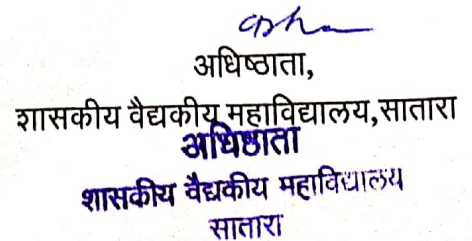 अधिष्ठाता,
शासकीय वैद्यकीय महाविद्यालय,सातारा
अधिष्ठाता
शासकीय वैद्यकीय महाविद्यालय
सातारा